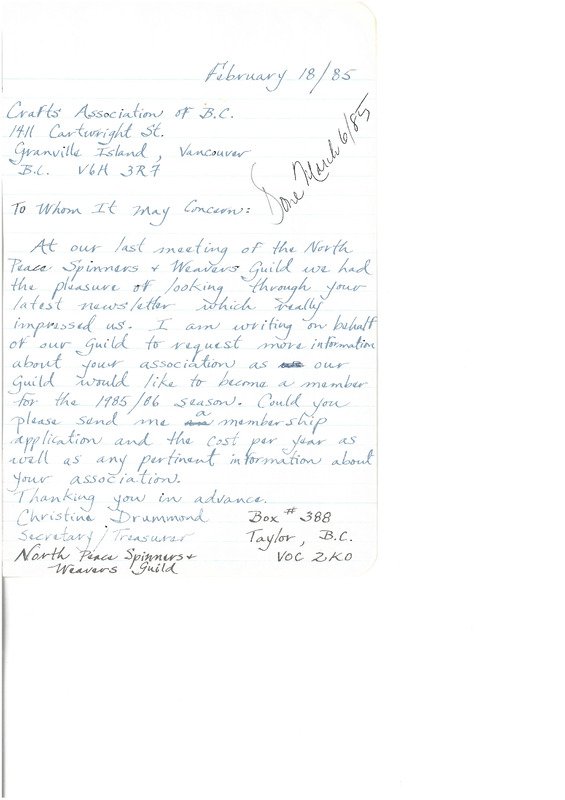 February 18/85
Crafts Association of B.C.
1411 Cartwright St.
Granville Island, Vancouver
B.C. V6H 3R7
Done March 6/85
To Whom It May Concern:
At our last meeting of the North
Peace Spinners + Weavers Guild we had
the pleasure of looking through your
latest newsletter which really
impressed us. I am writing on behalf
of our Guild to request more information
about your association as our
Guild would like to become a member
for the 1985/86 season. Could you
please send me a membership
application and the cost per year as
well as any pertinent information about
your association.
Thanking you in advance.
Christine Drummond Box # 388
Secretary/Treasurer Taylor, B.C.
North Peace Spinners + VOC 2KO
Weavers Guild